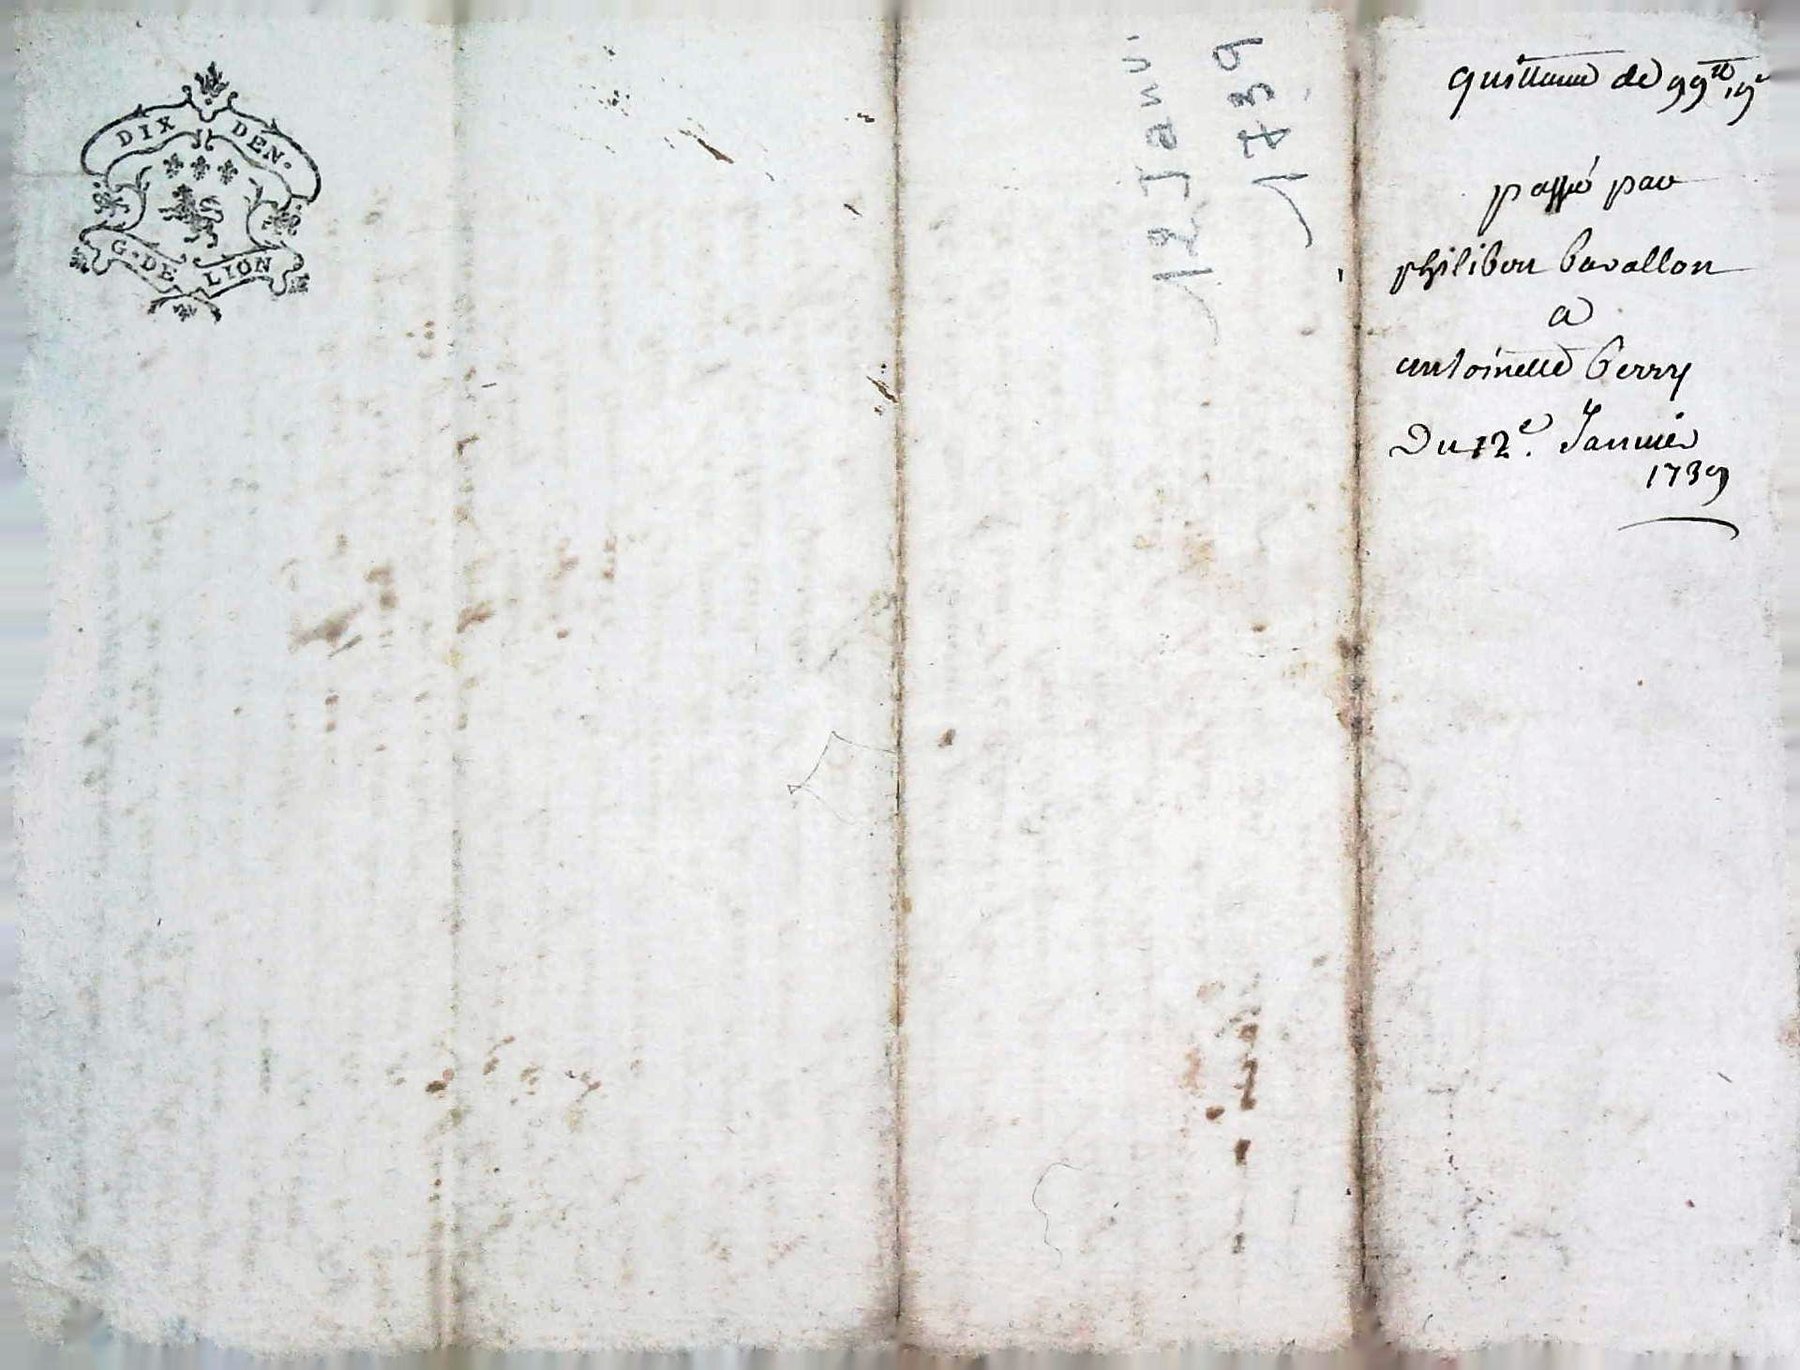 DIX DEN.
G. DE LION
12 Janv.
1739
quittance de 99 lt 19 s
passé par
philibert bavallon
a
antoinette berry
Du 12e. Janvier
1739